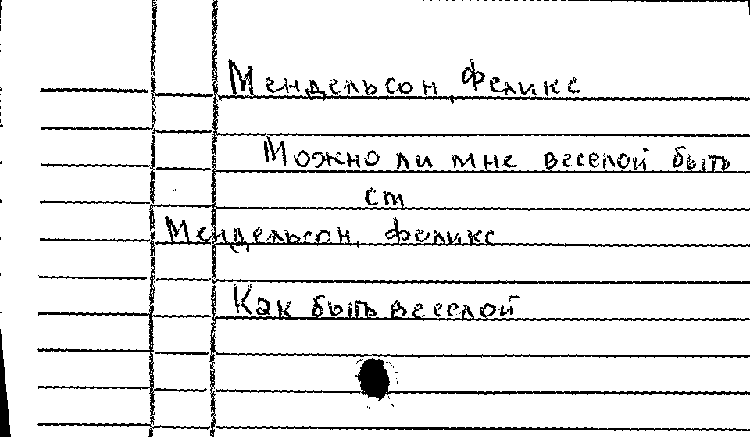 Мендельсон, Феликс
Можно ли мне веселой быть
см
Мендельсон, Феликс
Как быть веселой